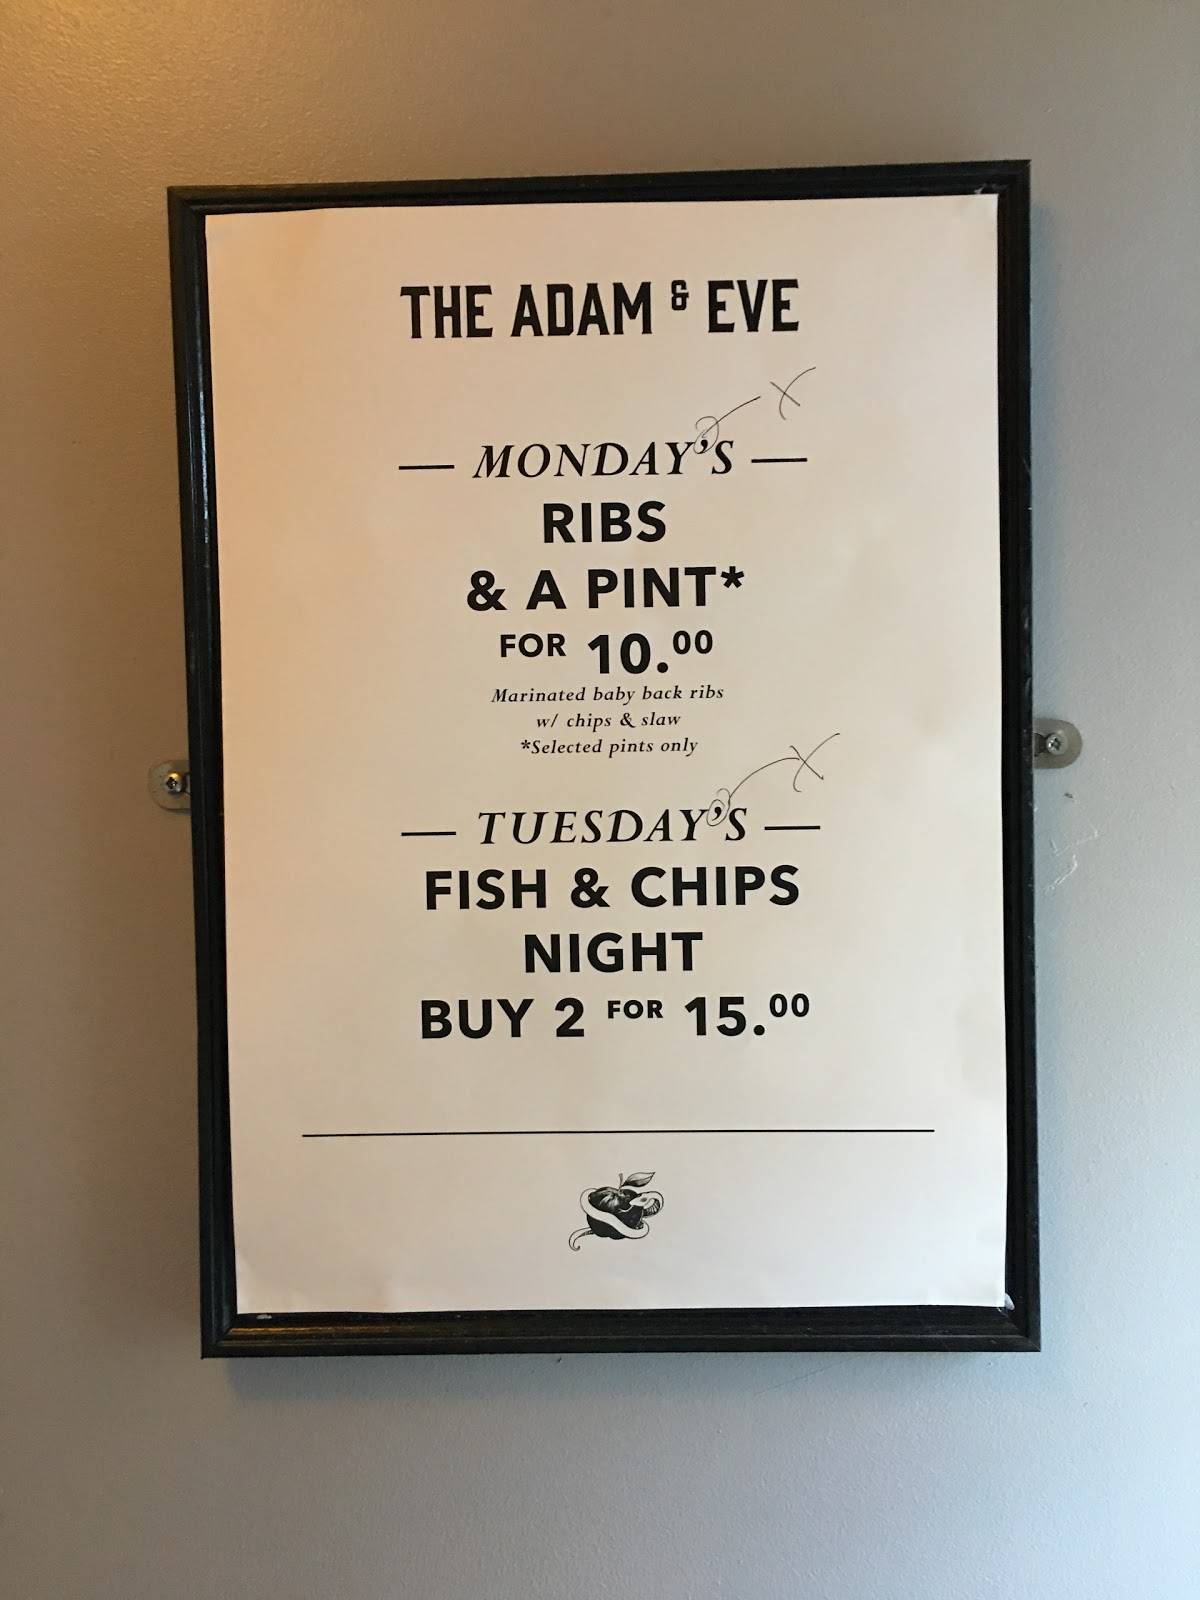 THE ADAM & EVE
— MONDAY'S —
RIBS
& A PINT*
FOR 10.00
Marinated baby back ribs
w/ chips & slaw
*Selected pints only
— TUESDAY'S —
FISH & CHIPS
NIGHT
BUY 2 FOR 15.00